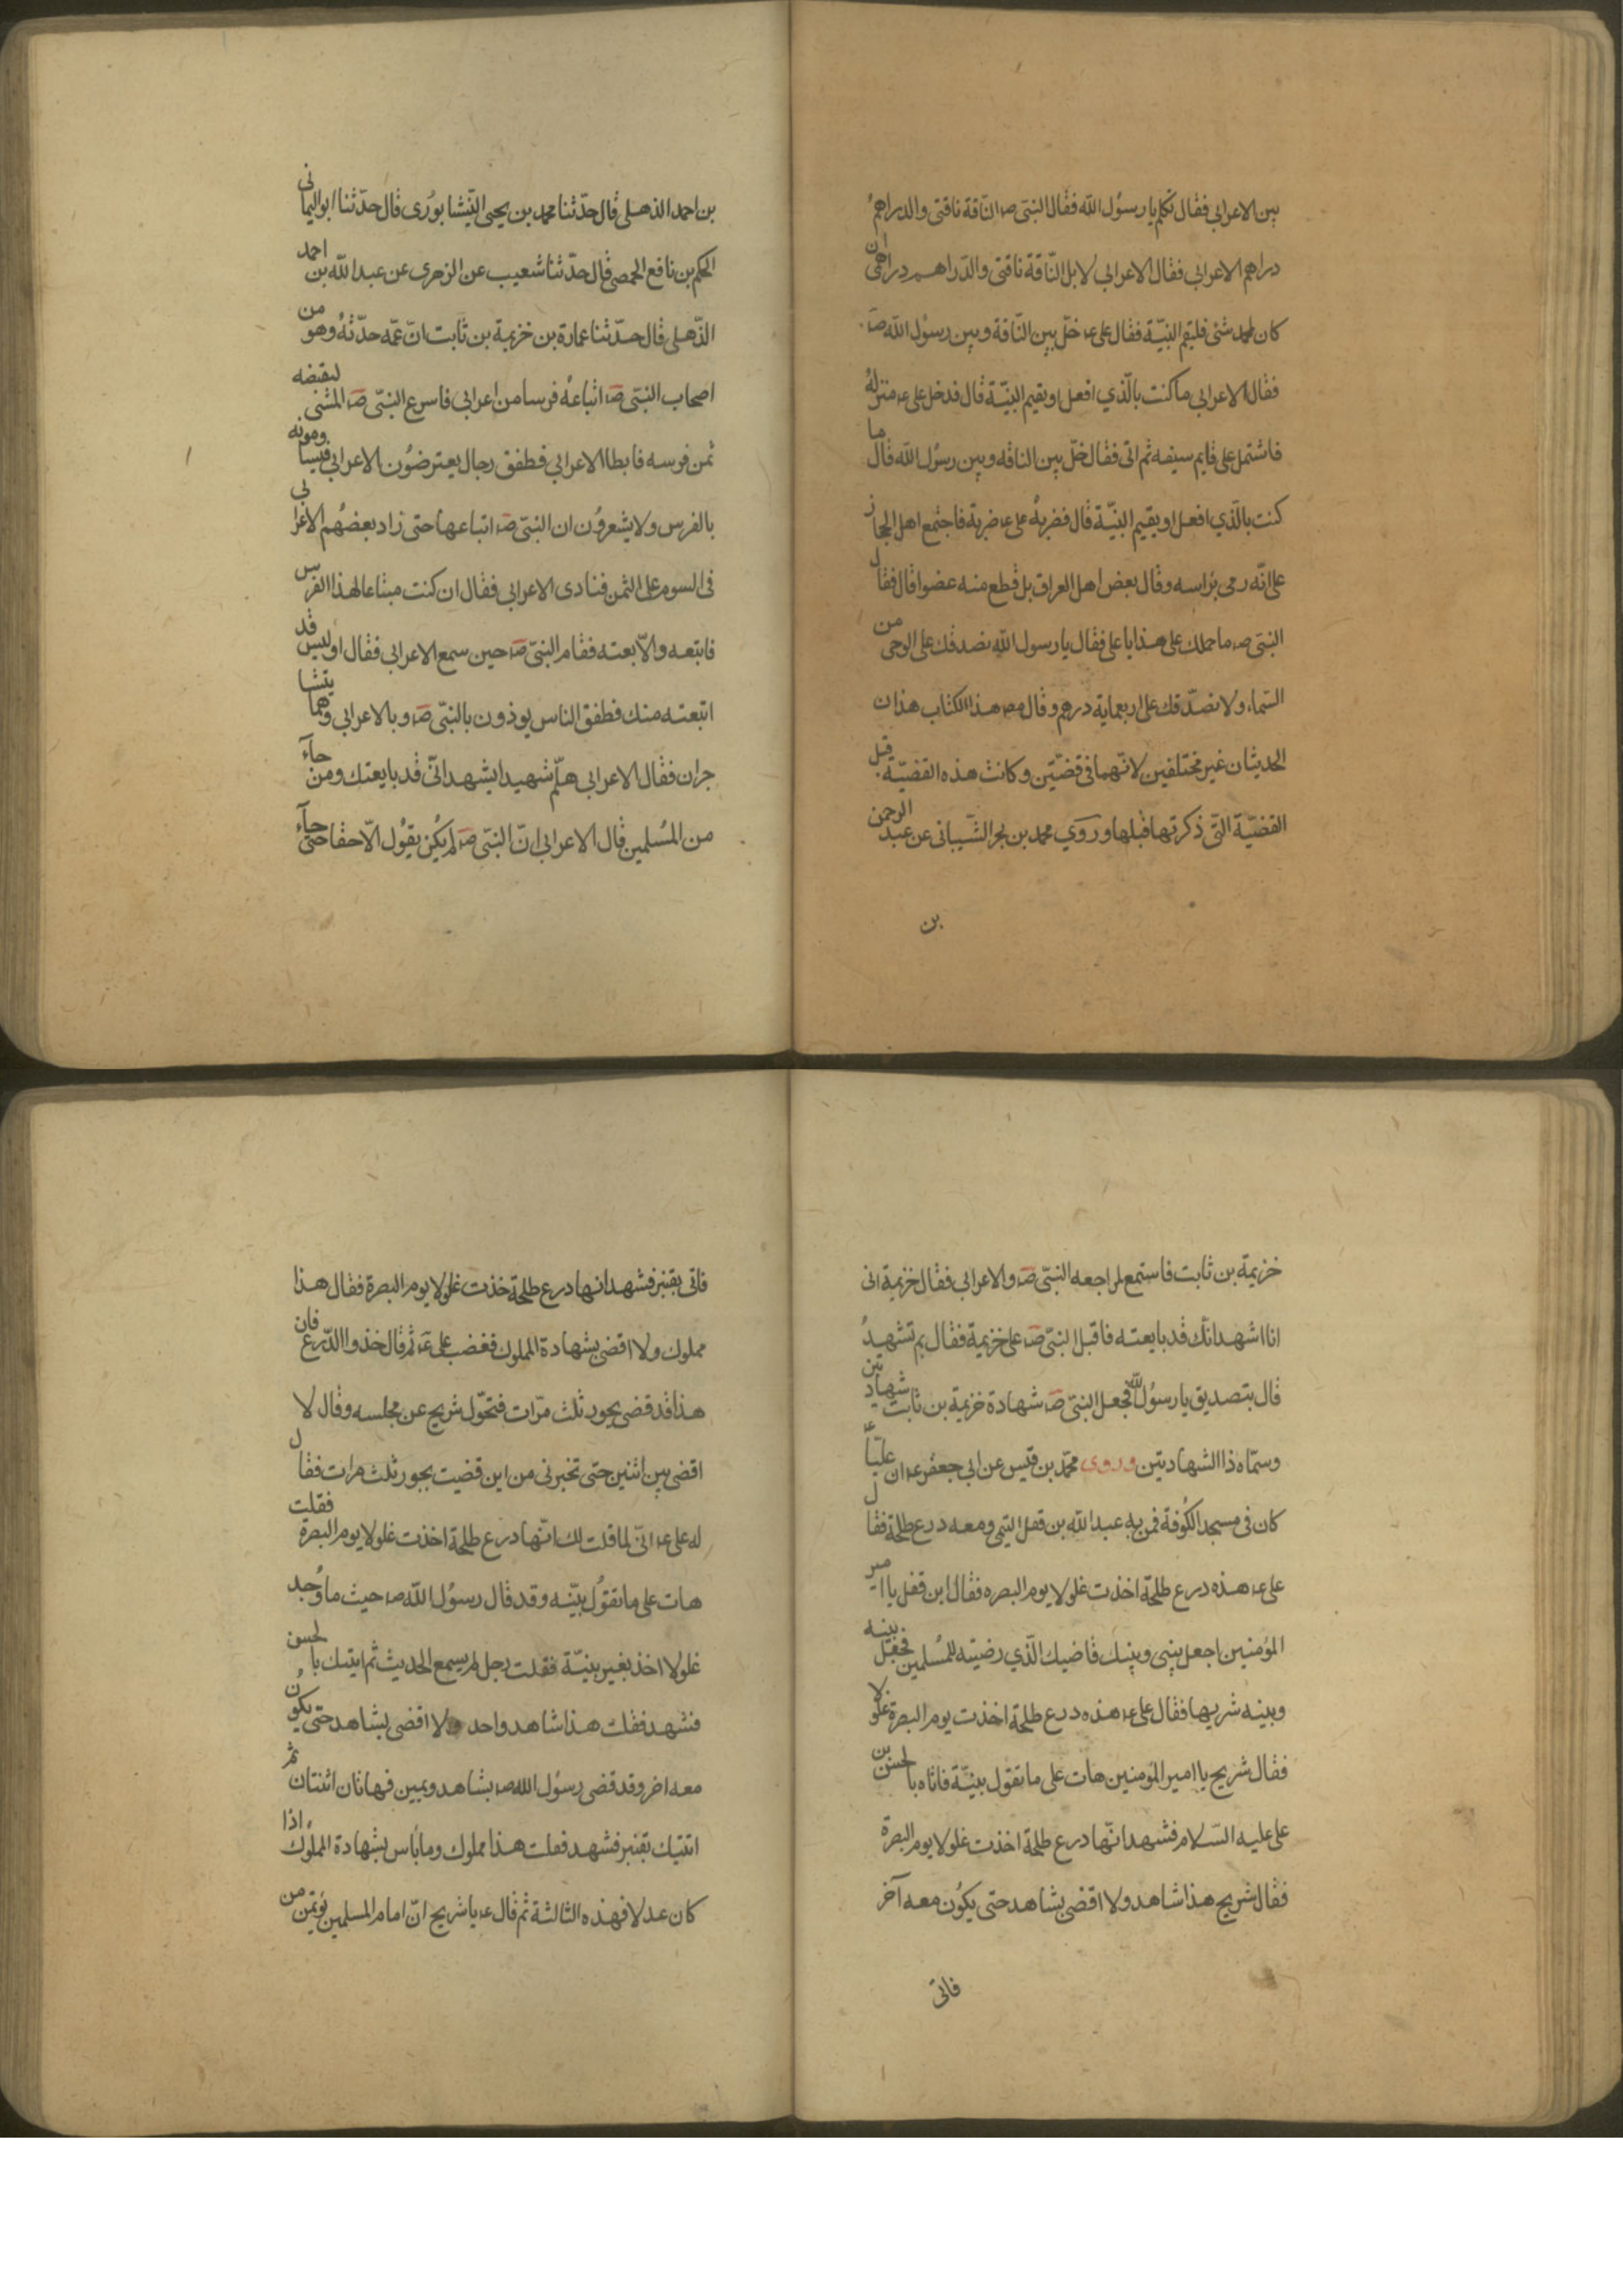 بين الاعرابي فقال تكلم يا رسول الله فقال النبي ص الناقة ناقتي والدراهم
دراهم الاعرابي فقال الاعرابي لا بل الناقة ناقتي والدراهم دراهمي ان
كان لمحمد شئ فليقم البينة فقال علي ع خل بين الناقة وبين رسول الله ص
فقال الاعرابي ما كنت بالذي افعل او يقيم البينة قال فدخل علي ع منزله
فاشتمل على قايم سيفه ثم اتى فقال خل بين الناقه وبين رسول الله قال ما
كنت بالذي افعل او يقيم البينة قال فضربه علي ع ضربة فاجتمع اهل الحجاز
على انه رمى براسه وقال بعض اهل العراق بل قطع منه عضوا قال فقال
النبي ص ما حملك على هذا يا علي فقال يا رسول الله نصدقك على الوحي من
السماء ولا نصدقك على اربعماية درهم وقال مص هذا الكتاب هذان
الحديثان غير مختلفين لانهما في قضيتين وكانت هذه القضية قبل
القضية التي ذكرتها قبلها وروي محمد بن بحر الشيباني عن عبد الرحمن
بن
بن احمد الذهلي قال حدثنا محمد بن يحيى النيشابوري قال حدثنا ابو اليماني
الحكم بن نافع الحمصي قال حدثنا شعيب عن الزهري عن عبد الله بن احمد
الذهلي قال حدثنا عمارة بن خزيمة بن ثابت ان عمه حدثه وهو من
اصحاب النبي ص ابتاعه فرسا من اعرابي فاسرع النبي ص المشي ليقبضه
ثمن فرسه فابطا الاعرابي فطفق رجال يعترضون الاعرابي فيساومونه
بالفرس ولا يشعرون ان النبي ص ابتاعها حتى زاد بعضهم الاعرابي
في السوم على الثمن فنادى الاعرابي فقال ان كنت مبتاعا لهذا الفرس
فابتعه والا بعته فقام النبي ص حين سمع الاعرابي فقال اوليس قد
ابتعته منك فطفق الناس يوذون بالنبي ص وبالاعرابي وهما يتشا
جران فقال الاعرابي هلم شهيدا يشهد اني قد بايعتك ومن جآء
من المسلمين قال الاعرابي ان النبي ص لم يكن يقول الا حقا حتى جآء
خزيمة بن ثابت فاستمع لمراجعه النبي ص والاعرابي فقال خزيمة اني
انا اشهد انك قد بايعته فاقبل النبي ص على خزيمة فقال بم تشهد
قال بتصديق يا رسول الله فجعل النبي ص شهادة خزيمة بن ثابت شهادتين
وسماه ذا الشهادتين وروى محمد بن قيس عن ابي جعفر ع ان عليا ع
كان في مسجد الكوفة فمر به عبد الله بن قفل التيمي ومعه درع طلحة فقال
علي ع هذه درع طلحة اخذت غلولا يوم البصره فقال ابن قفل يا امير
المؤمنين اجعل بيني وبينك قاضيك الذي رضيته للمسلمين فجعل بينه
وبينه شريحا فقال علي ع هذه درع طلحة اخذت يوم البصرة غلولا
فقال شريح يا امير المؤمنين هات على ما تقول بينة فاتاه بالحسن بن
علي عليه السلام فشهد انها درع طلحة اخذت غلولا يوم البصرة
فقال شريح هذا شاهد ولا اقضي بشاهد حتى يكون معه آخر
فاتى
فاتى بقنبر فشهد انها درع طلحة خذت غلولا يوم البصرة فقال هذا
مملوك ولا اقضي بشهادة المملوك فغضب علي ع ثم قال خذوا الدرع فان
هذا قد قضى بجور ثلث مرات فتحول شريح عن مجلسه وقال لا
اقضي بين اثنين حتى تخبرني من اين قضيت بجور ثلث مرات فقال
له علي ع اني لما قلت لك انها درع طلحة اخذت غلولا يوم البصرة فقلت
هات على ما تقول بينه وقد قال رسول الله ص حيث ما وجد
غلولا اخذ بغير بينة فقلت رجل لم يسمع الحديث ثم اتيتك بالحسن
فشهد فقلت هذا شاهد واحد ولا اقضي بشاهد حتى يكون
معه اخر وقد قضى رسول الله ص بشاهد ويمين فهاتان اثنتان ثم
اتيتك بقنبر فشهد فقلت هذا مملوك وما باس بشهادة المملوك اذا
كان عدلا فهذه الثالثة ثم قال ع يا شريح ان امام المسلمين يؤتمن من